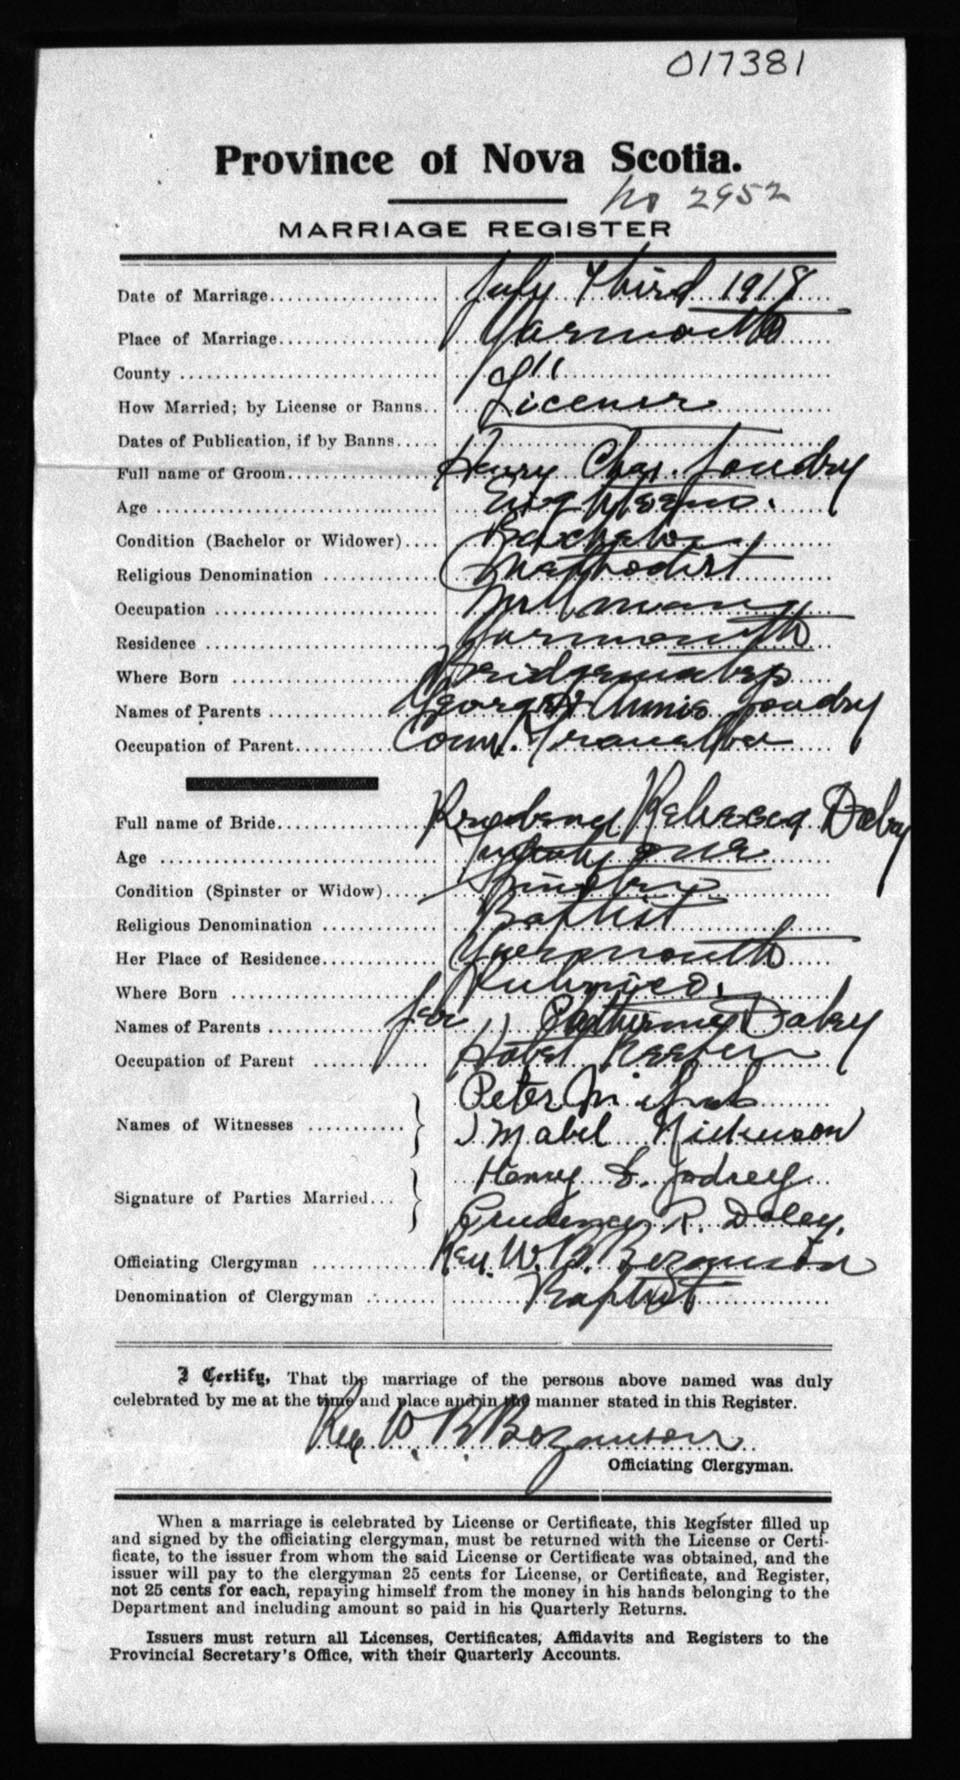 017381
Province of Nova Scotia.
No 2952
MARRIAGE REGISTER
Date of Marriage.................... July Third 1918
Place of Marriage................... Yarmouth
County .............................. "
How Married; by License or Banns.. License
Dates of Publication, if by Banns.....
Full name of Groom.................. Henry Chas. Joudry
Age ................................. Eighteen.
Condition (Bachelor or Widower).... Bachelor
Religious Denomination ............ Methodist
Occupation ........................ Millman
Residence ......................... Yarmouth
Where Born ....................... Bridgewater
Names of Parents .................. George & Annie Joudry
Occupation of Parent............... Coml. Traveller
Full name of Bride................. Rebecca Daley
Age ............................... Twenty one
Condition (Spinster or Widow)..... Spinster
Religious Denomination ............ Baptist
Her Place of Residence............. Yarmouth
Where Born ....................... Pubnico.
Names of Parents .................. Daley
Occupation of Parent .............. Hotel Keeper
Peter
Names of Witnesses ........... } Mabel Nickerson
Henry S. Jodrey
Signature of Parties Married... }
Prudence R. Daley.
Officiating Clergyman ............ Rev. W. B. Bezanson
Denomination of Clergyman ........ Baptist
I Certify, That the marriage of the persons above named was duly
celebrated by me at the time and place and in the manner stated in this Register.
Rev W. B Bezanson
Officiating Clergyman.
When a marriage is celebrated by License or Certificate, this Register filled up
and signed by the officiating clergyman, must be returned with the License or Certi-
ficate, to the issuer from whom the said License or Certificate was obtained, and the
issuer will pay to the clergyman 25 cents for License, or Certificate, and Register,
not 25 cents for each, repaying himself from the money in his hands belonging to the
Department and including amount so paid in his Quarterly Returns.
Issuers must return all Licenses, Certificates, Affidavits and Registers to the
Provincial Secretary's Office, with their Quarterly Accounts.